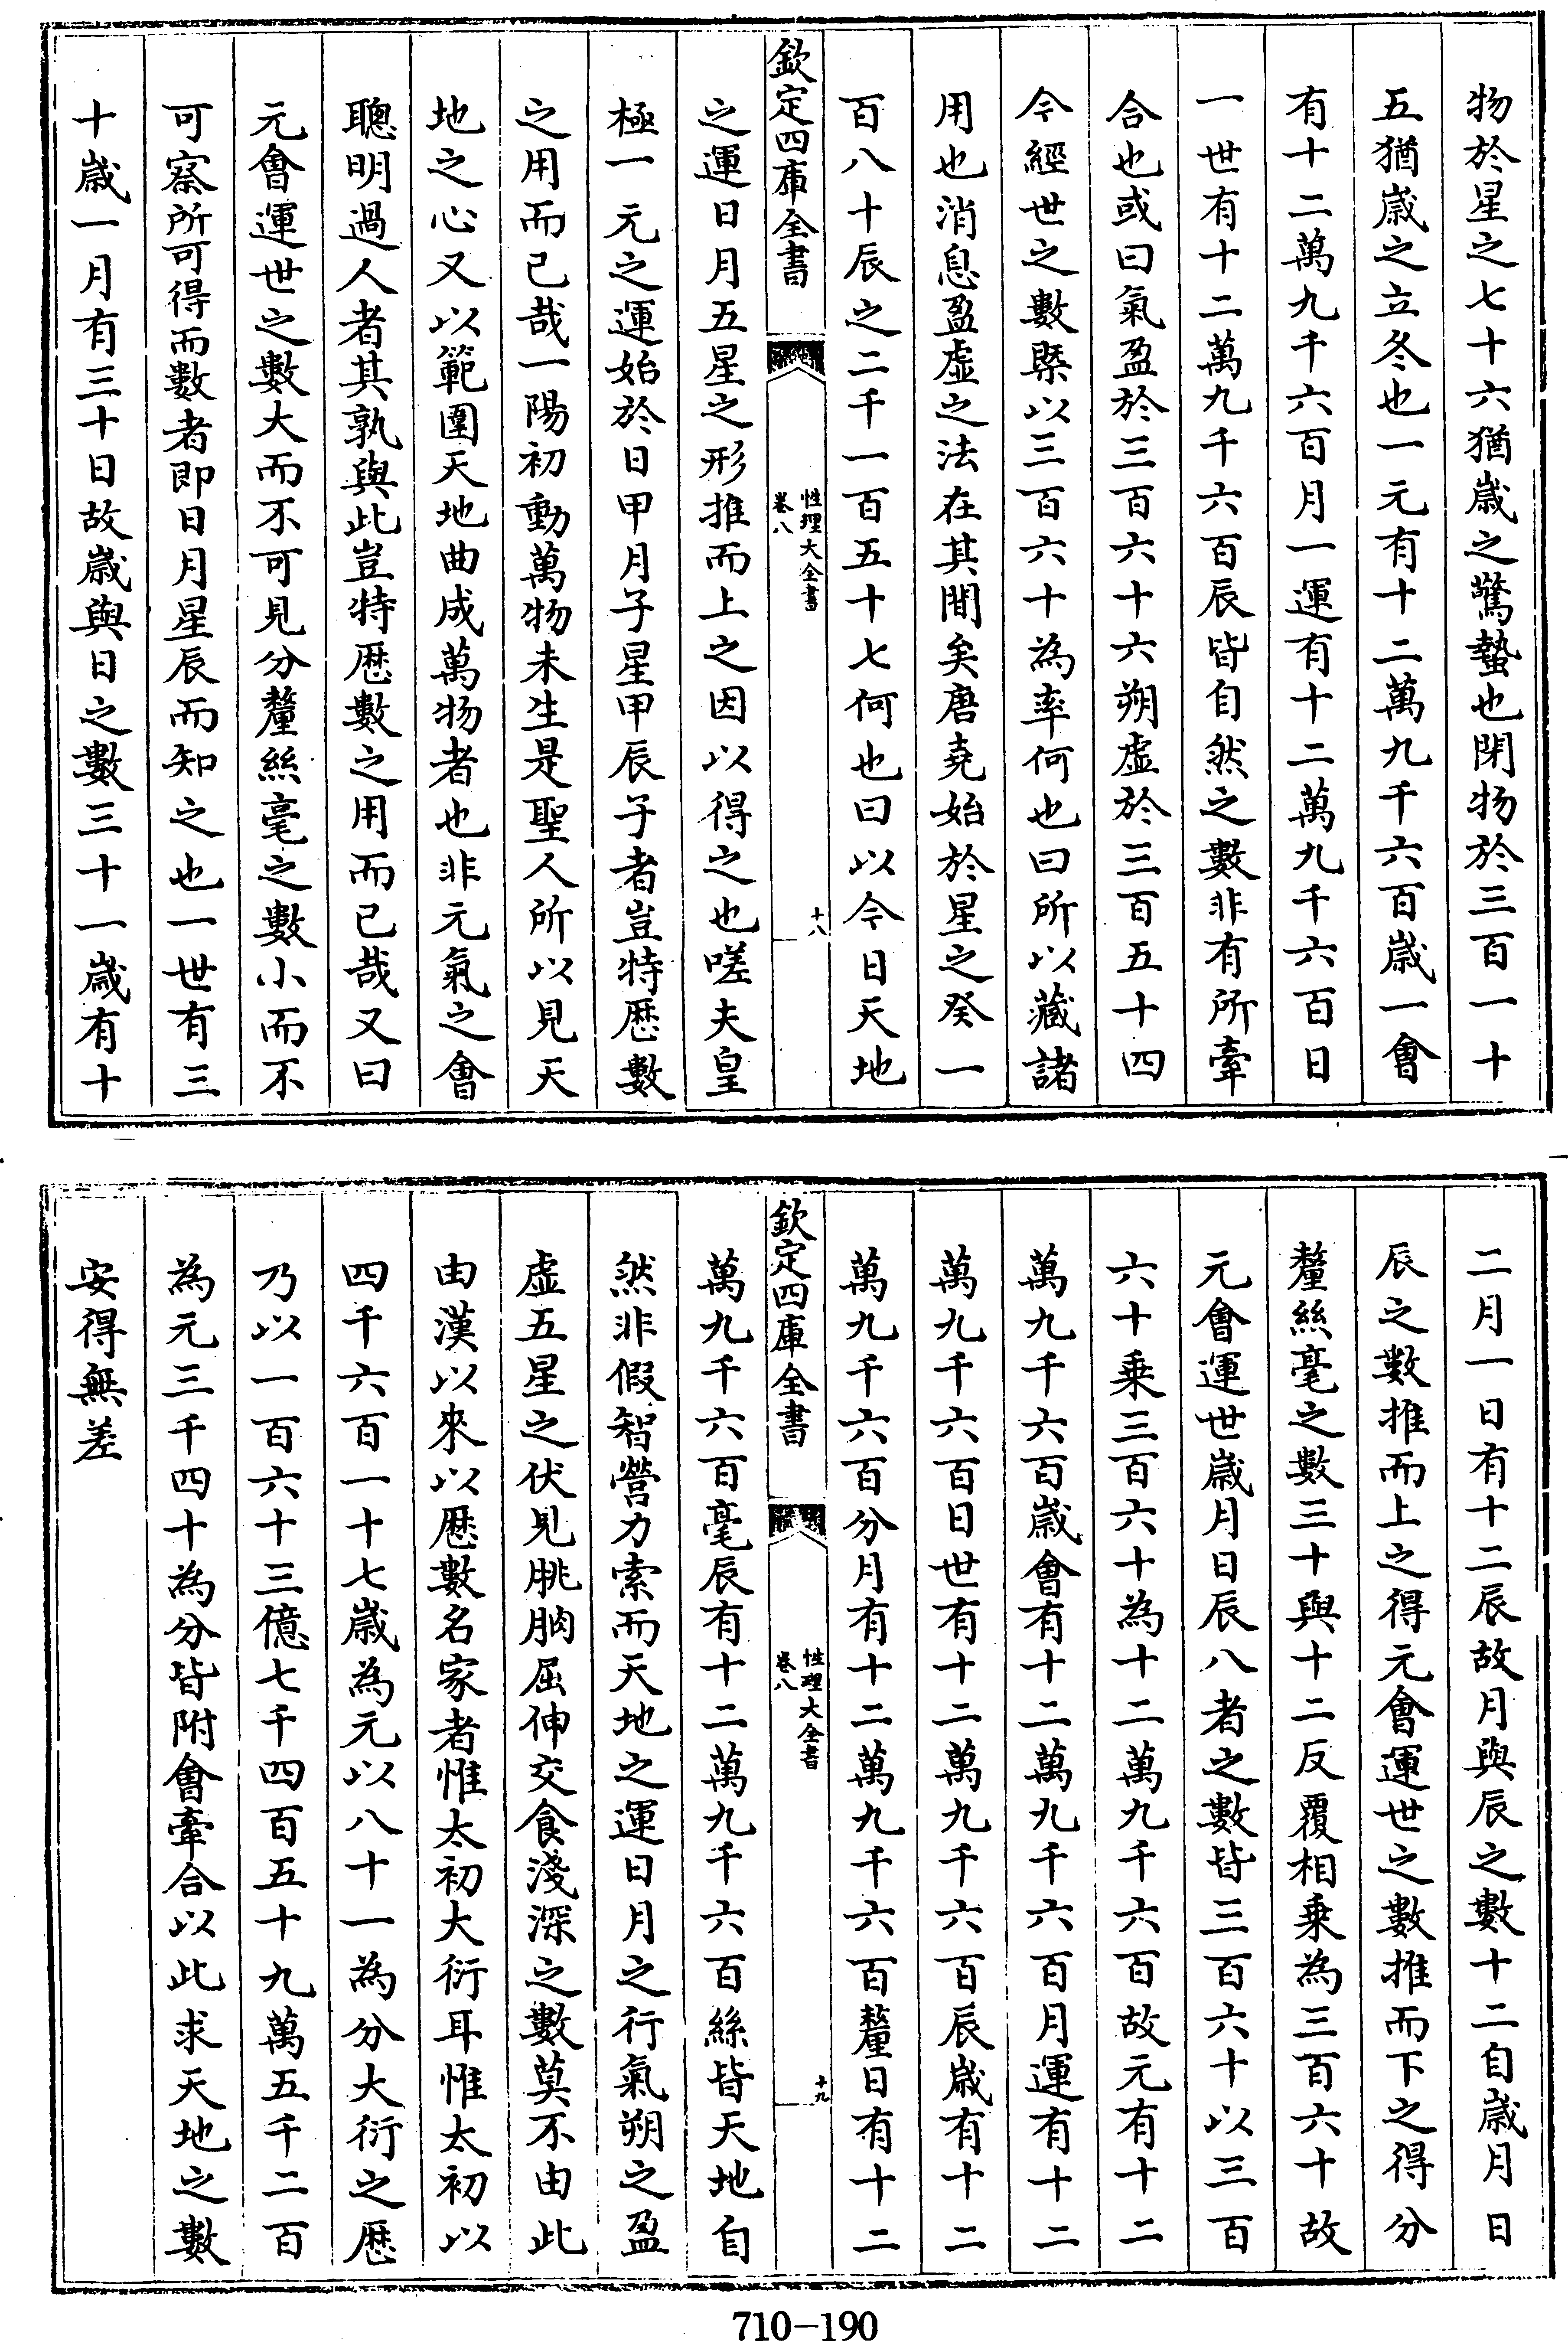 物於星之七十六猶歳之驚蟄也閉物於三百一十
五猶歳之立冬也一元有十二萬九千六百歳一會
有十二萬九千六百月一運有十二萬九千六百日
一世有十二萬九千六百辰皆自然之數非有所牽
合也或曰氣盈於三百六十六朔虚於三百五十四
今經世之數槩以三百六十為率何也曰所以藏諸
用也消息盈虚之法在其間矣唐堯始於星之癸一
百八十辰之二千一百五十七何也曰以今日天地
欽定四庫全書
性理大全書
卷八
十八
之運日月五星之形推而上之因以得之也嗟夫皇
極一元之運始於日甲月子星甲辰子者豈特厯數
之用而已哉一陽初動萬物未生是聖人所以見天
地之心又以範圍天地曲成萬物者也非元氣之會
聰明過人者其孰與此豈特厯數之用而已哉又曰
元會運世之數大而不可見分釐絲毫之數小而不
可察所可得而數者即日月星辰而知之也一世有三
十歳一月有三十日故歳與日之數三十一歳有十
二月一日有十二辰故月與辰之數十二自歳月日
辰之數推而上之得元會運世之數推而下之得分
釐絲毫之數三十與十二反覆相乗為三百六十故
元會運世歳月日辰八者之數皆三百六十以三百
六十乗三百六十為十二萬九千六百故元有十二
萬九千六百歳會有十二萬九千六百月運有十二
萬九千六百日世有十二萬九千六百辰歳有十二
萬九千六百分月有十二萬九千六百釐日有十二
欽定四庫全書
性理大全書
卷八
十九
萬九千六百毫辰有十二萬九千六百絲皆天地自
然非假智營力索而天地之運日月之行氣朔之盈
虚五星之伏見朓朒屈伸交食淺深之數莫不由此
由漢以來以厯數名家者惟太初大衍耳惟太初以
四千六百一十七歳為元以八十一為分大衍之厯
乃以一百六十三億七千四百五十九萬五千二百
為元三千四十為分皆附會牽合以此求天地之數
安得無差
710-190